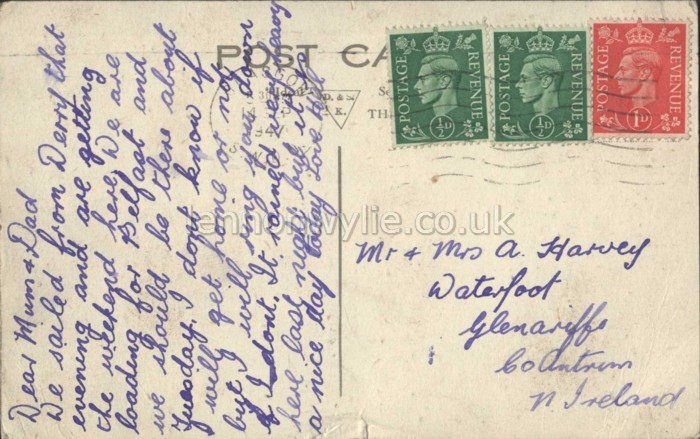 POST CA
POSTAGE REVENUE ½D
POSTAGE REVENUE ½D
POSTAGE REVENUE 1D
Dear Mum & Dad
We sailed from Derry that
evening and are getting
the weekend here. We are
loading for Belfast and
we should be there about
Tuesday. I dont know if
I will get home or not
but I will ring you down
if I dont. It rained very heavy
here last night but it is
a nice day today Love
Mr & Mrs A. Harvey
Waterfoot
Glenariffe
Co Antrim
N. Ireland
lennonwylie.co.uk